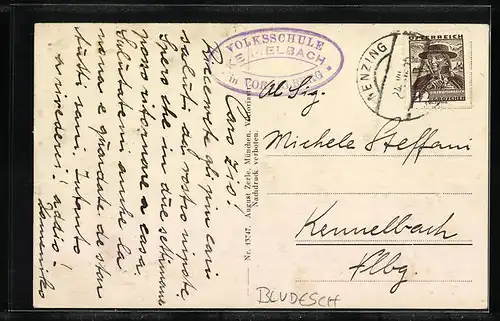 Caro Zio!
Ricevete gli più cari
saluti dal vostro nipote.
Spero che in due settimane
posso ritornare a casa.
Salutatemi anche la
nonna e guardate de star
tutti sani. Intanto
a rivederci! addio!
VOLKSSCHULE
KENNELBACH
in VORARLBERG
NENZING
24.
ÖSTERREICH
GROSCHEN
Al Sig.
Michele Steffani
Kennelbach
Vlbg.
Nr. 43747. August Zerle, München,
Nachdruck verboten.
BLUDESCH